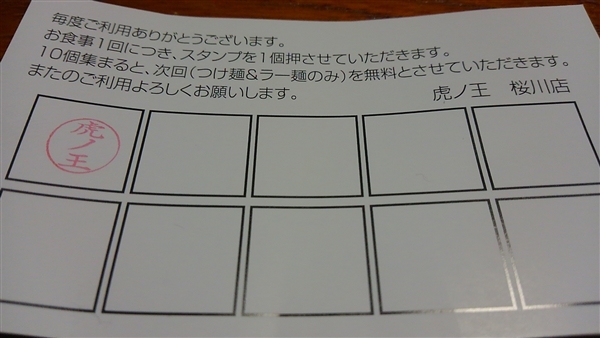 毎度ご利用ありがとうございます。
お食事1回につき、スタンプを1個押させていただきます。
10個集まると、次回(つけ麺&ラー麺のみ)を無料とさせていただきます。
またのご利用よろしくお願いします。
虎ノ王 桜川店
虎ノ王